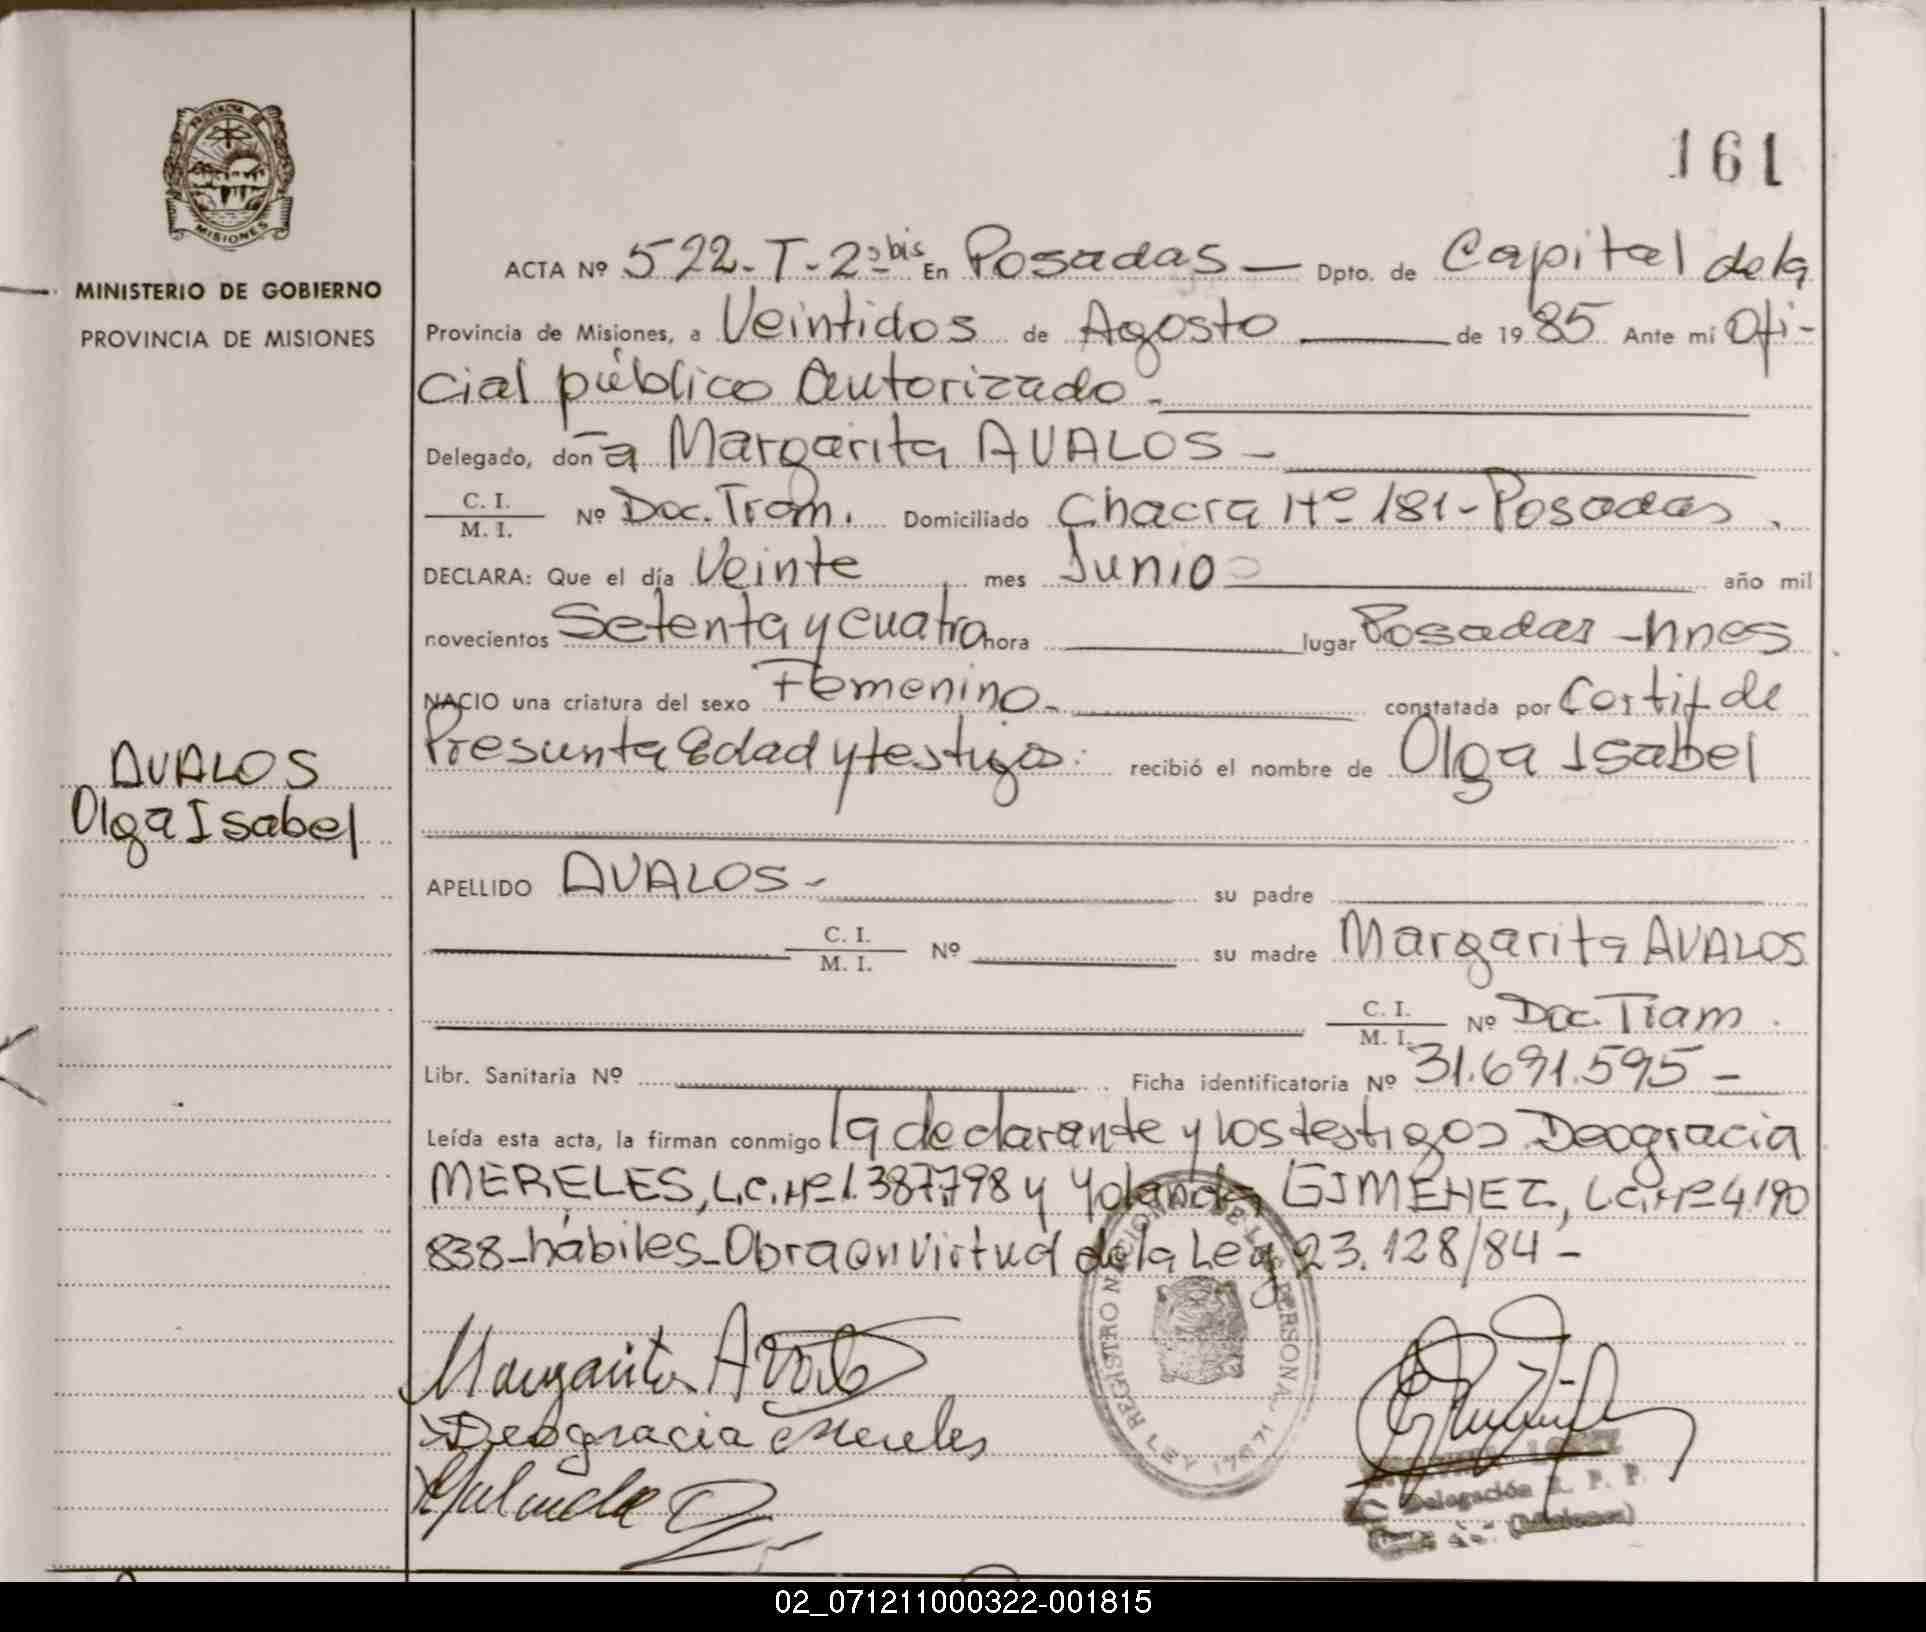 161
PROVINCIA DE
MISIONES
MINISTERIO DE GOBIERNO
PROVINCIA DE MISIONES
AVALOS
Olga Isabel
ACTA Nº 522-T-2º bis En Posadas — Dpto. de Capital de la
Provincia de Misiones, a Veintidos de Agosto de 1985 Ante mí Ofi-
cial público autorizado.
Delegado, doña Margarita AVALOS -
C. I.
M. I. Nº Doc. Tram. Domiciliado Chacra Nº 181-Posadas.
DECLARA: Que el día Veinte mes Junio año mil
novecientos Setenta y cuatro hora lugar Posadas -Mnes
NACIO una criatura del sexo Femenino. constatada por Certif de
Presunta Edad y testigos. recibió el nombre de Olga Isabel
APELLIDO AVALOS - su padre
C. I.
M. I. Nº su madre Margarita AVALOS
C. I.
M. I. Nº Doc. Tram.
Libr. Sanitaria Nº Ficha identificatoria Nº 31.691.595 -
Leída esta acta, la firman conmigo la declarante y los testigos Deogracia
MERELES, L.C. Nº 1.387.798 y Yolanda GIMENEZ, L.C. Nº 4.190
838-hábiles-Obra en virtud de la Ley 23.128/84 -
REGISTRO NACIONAL DE LAS PERSONAS
Margarita Avalos
Deogracia Mereles
Delegación R. P. P.
(Misiones)
02_071211000322-001815